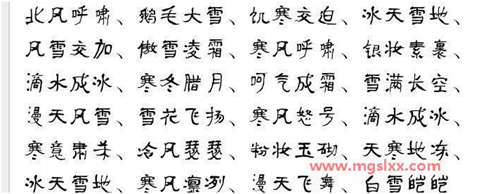 北风呼啸、鹅毛大雪、饥寒交迫、冰天雪地、
风雪交加、傲雪凌霜、寒风呼啸、银妆素裹、
滴水成冰、寒冬腊月、呵气成霜、雪满长空、
漫天风雪、雪花飞扬、寒风怒号、滴水成冰、
寒意肃杀、冷风瑟瑟、粉妆玉砌、天寒地冻、
www.mgslxx.com
冰天雪地、寒风凛冽、漫天飞舞、白雪皑皑